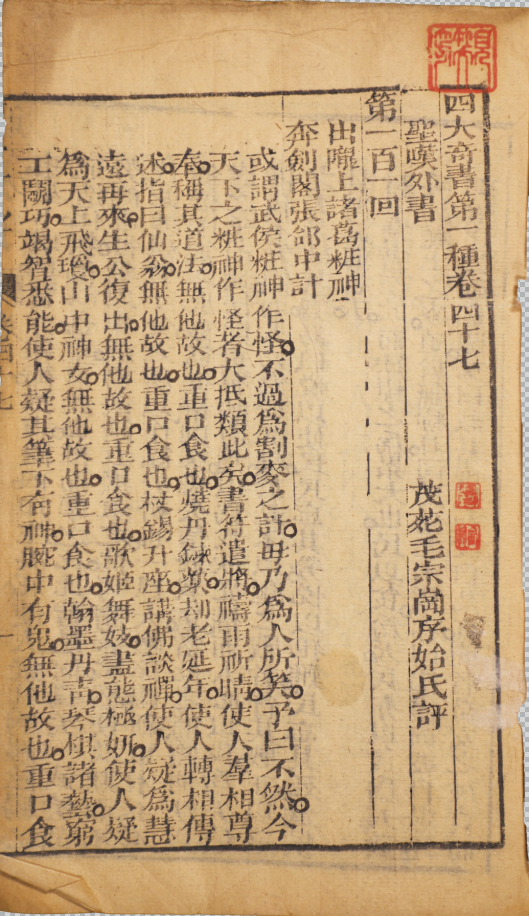 四大奇書第一種卷四十七
聖嘆外書
茂苑毛宗崗序始氏評
第一百一回
出隴上諸葛粧神
奔劍閣張郃中計
或謂武侯粧神作怪不過為割麥之計毋乃為人所笑予曰不然今
天下之粧神作怪者大抵類此矣書符遣將禱雨祈晴使人羣相尊
奉稱其道法無他故也重口食也燒丹鍊藥却老延年使人轉相傳
述指曰仙翁無他故也重口食也杖錫升座講佛談禪使人疑為慧
遠再來生公復出無他故也重口食也歌姬舞妓盡態極妍使人疑
為天上飛瓊山中神女無他故也重口食也翰墨丹青琴棋諸藝窮
工鬬巧竭智悉能使人疑其筆下有神腕中有鬼無他故也重口食